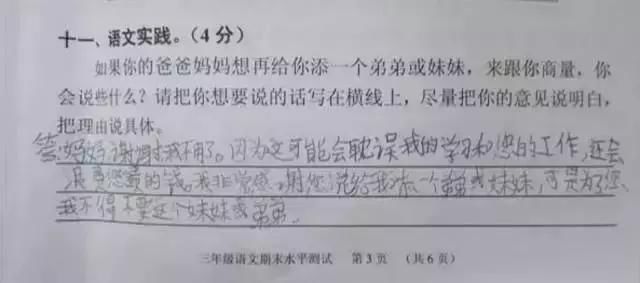 十一、语文实践。(4分)
如果你的爸爸妈妈想再给你添一个弟弟或妹妹，来跟你商量，你
会说些什么？请把你想要说的话写在横线上，尽量把你的意见说明白，
把理由说具体。
答:妈妈谢谢我不用了。因为这可能会耽误我的学习和您的工作,还会
浪费您的钱。我非常感谢您说给我添一个弟弟或妹妹,可是为了您,
我不得不要这个妹妹或弟弟。
三年级语文期末水平测试 第3页 （共6页）